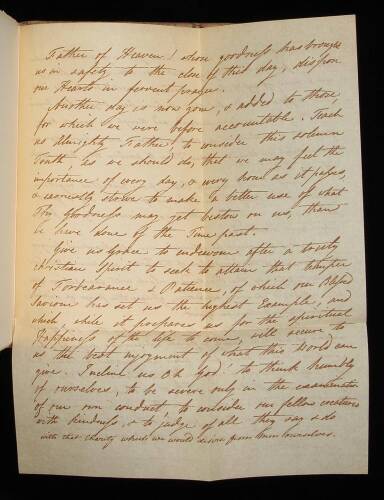 Father of Heaven! whose goodness has brought
us in safety to the close of this day, dispose
our Hearts in fervent prayer.
Another day is now gone, & added to those
for which we were before accountable. Teach
us Almighty Father, to consider this solemn
Truth, as we should do, that we may feel the
importance of every day, & every hour as it passes,
& earnestly strive to make a better use of what
Thy Goodness may yet bestow on us, than
we have done of the Time past.
Give us Grace to endeavour after a truly
christian Spirit to seek to attain that temper
of Forbearance & Patience, of which our Blessed
Saviour has set us the highest Example; and
which, while it prepares us for the spiritual
Happiness of the life to come, will secure to
us the best enjoyment of what this World can
give. Incline us Oh God! to think humbly
of ourselves, to be severe only in the examination
of our own conduct, to consider our fellow creatures
with kindness, & to judge of all they say & do
with that Charity which we would desire from them ourselves.